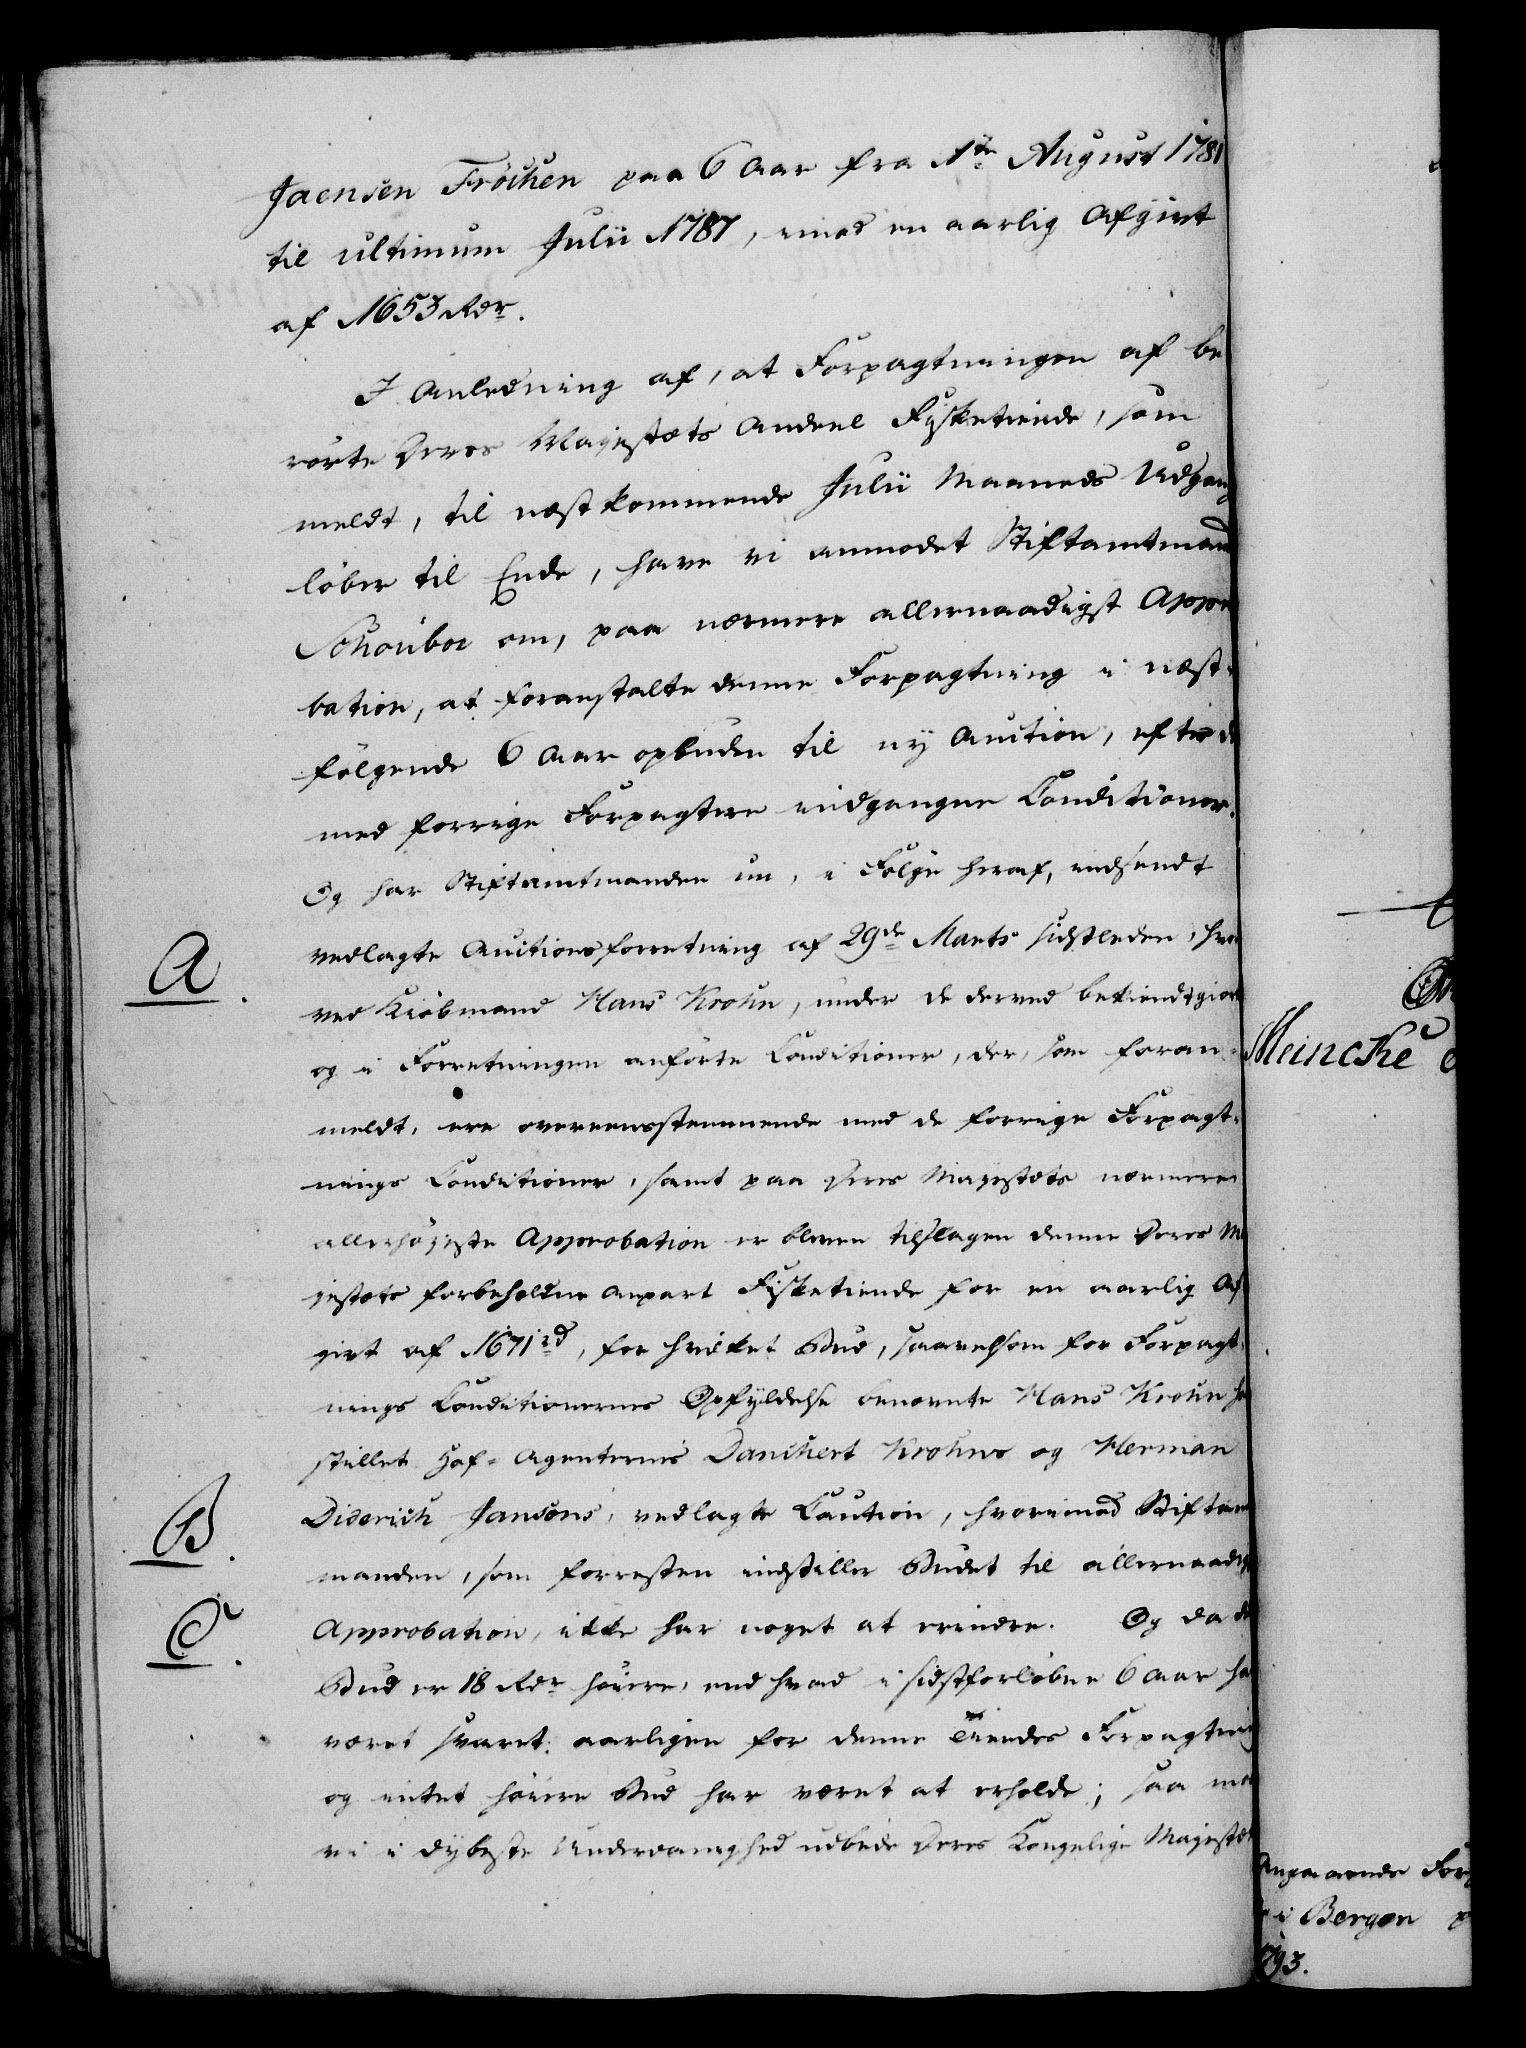 Jaensen Fröchen paa 6 Aar fra 1ste August 1781
til ultimum Julii 1787, imod en aarlig Afgivt
af 1653 Rdr.
I Anledning af, at Forpagtningen af be
rörte Deres Majestæts Andeel Fisketiende, som
meldt, til næstkommende Julii Maaneds Udgang
löber til Ende, have vi anmodet Stiftamtmand
Schouboe om, paa nærmere allernaadigst Appro
bation, at foranstalte denne Forpagtning i næst-
fölgende 6 Aar opbuden til nÿ Auction, efter de
med forrige Forpagtere indgangne Conditioner.
Og har Stiftamtmanden nu, i Fölge heraf, indsendt
A.
vedlagte Auctionsforretning af 29de Marts sidstleden, hvor
ved Kiöbmand Hans Krohn, under de derved bekiendtgiorte
og i Forretningen anförte Conditioner, der, som foran-
meldt, ere overeensstemmende med de forrige Forpagt-
nings Conditioner, samt paa Deres Majestæts nærmere
allerhöjeste Approbation er bleven tilslagen denne Deres Ma
jestæts forbeholdne Anpart Fisketiende for en aarlig Af
givt af 1671 rd, for hvilket Bud, saavelsom for Forpagt-
nings Conditionernes Opfÿldelse benævnte Hans Krohn har
stillet Hof-Agenterne Danckert Krohns og Herman
B.
Diderich Jansons, vedlagte Caution, hvorimod Stiftamt
manden, som forresten indstiller Budet til allernaadigst
C.
Approbation, ikke har noget at erindre. Og da dette
Bud er 18 Rdr höiere, end hvad i sidstforlöbne 6 Aar har
været svaret aarligen for denne Tiendes Forpagtning
og intet höiere Bud har været at erholde; saa maa
vi i dÿbeste Underdanighed udbede Deres Kongelige Majestæts
Meincke
Angaaende Forp
i Bergen p
793.